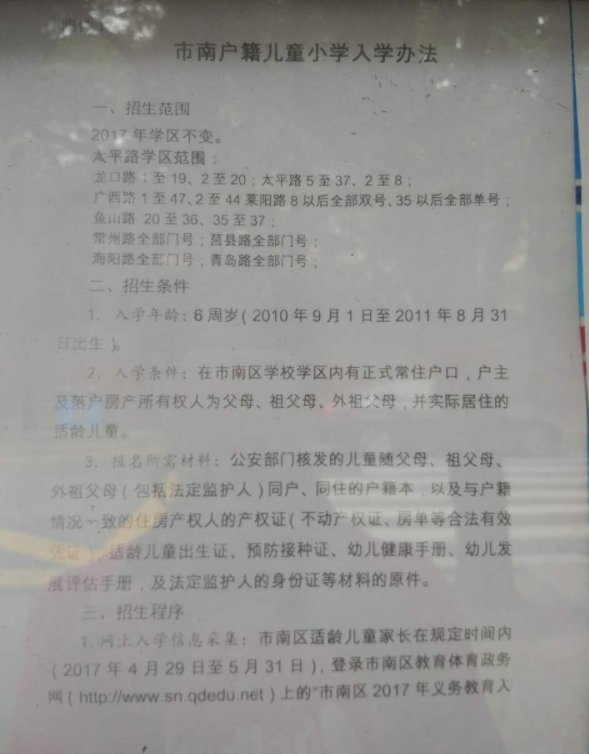 附件1
市南户籍儿童小学入学办法
一、招生范围
2017年学区不变。
太平路学区范围：
龙口路1至19、2至20；太平路5至37、2至8；
广西路1至47、2至44 莱阳路8以后全部双号、35以后全部单号；
鱼山路 20至36、35至37；
常州路全部门号；莒县路全部门号；
海阳路全部门号；青岛路全部门号；
二、招生条件
1. 入学年龄：6周岁（2010年9月1日至2011年8月31
日出生）。
2. 入学条件：在市南区学校学区内有正式常住户口，户主
及落户房产所有权人为父母、祖父母、外祖父母，并实际居住的
适龄儿童。
3. 报名所需材料：公安部门核发的儿童随父母、祖父母、
外祖父母（包括法定监护人）同户、同住的户籍本，以及与户籍
情况一致的住房产权人的产权证（不动产权证、房单等合法有效
凭证）、适龄儿童出生证、预防接种证、幼儿健康手册、幼儿发
展评估手册，及法定监护人的身份证等材料的原件。
三、招生程序
1. 网上入学信息采集：市南区适龄儿童家长在规定时间内
（2017年4月29日至5月31日），登录市南区教育体育政务
网（http://www.sn.qdedu.net）上的“市南区2017年义务教育入